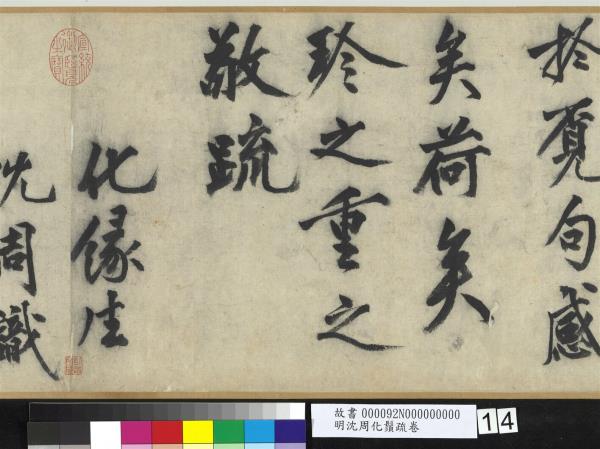 於覓句感
矣荷矣
珍之重之
敬疏
化緣生
沈周識
宣統御覽之寶
故書 000092N000000000
明沈周化鬚疏卷
14